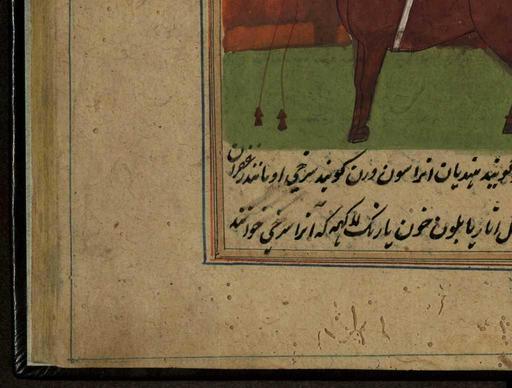 گویند هندیان انرا سون ورن گویند سرخی او مانند زعفران
گل انار یا بلون خون یا رنگ لاکهه که آنرا سرخی خوانند